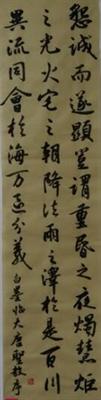 懇誠而遂顯豈謂重昏之夜燭慧炬
之光火宅之朝降法雨之澤於是百川
異流同會於海万區分義
白墨临大唐聖教序